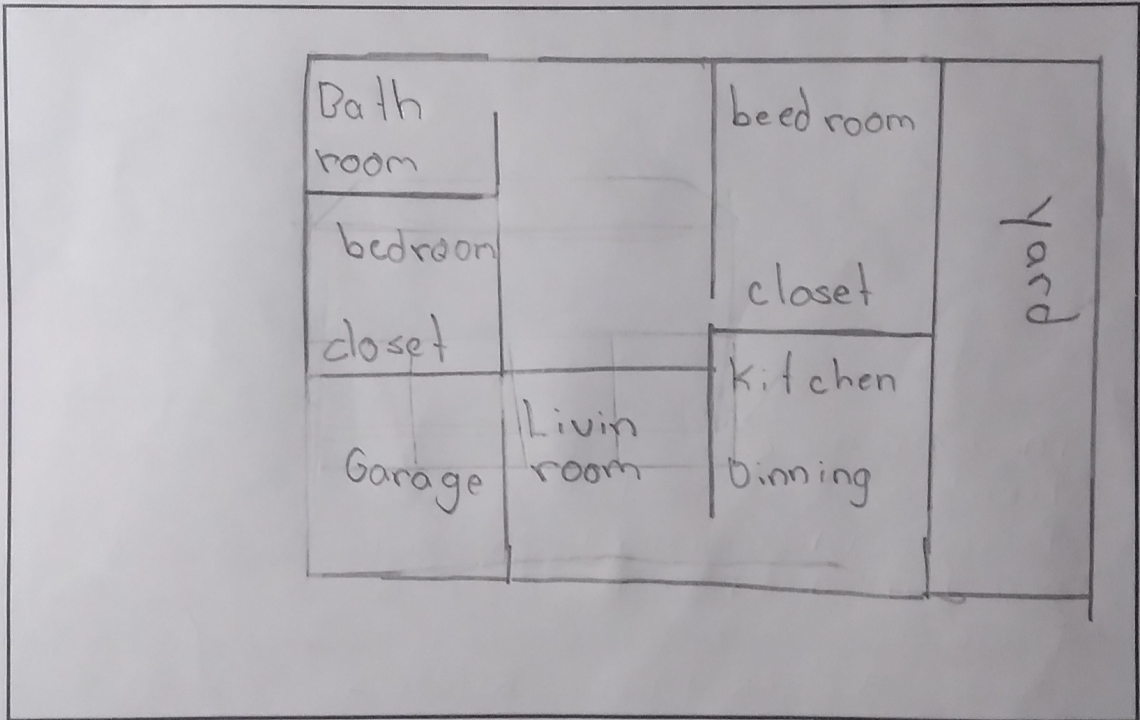 Bath
room
bedroom
closet
Garage
Livin
room
beed room
closet
Kitchen
Dinning
Yard